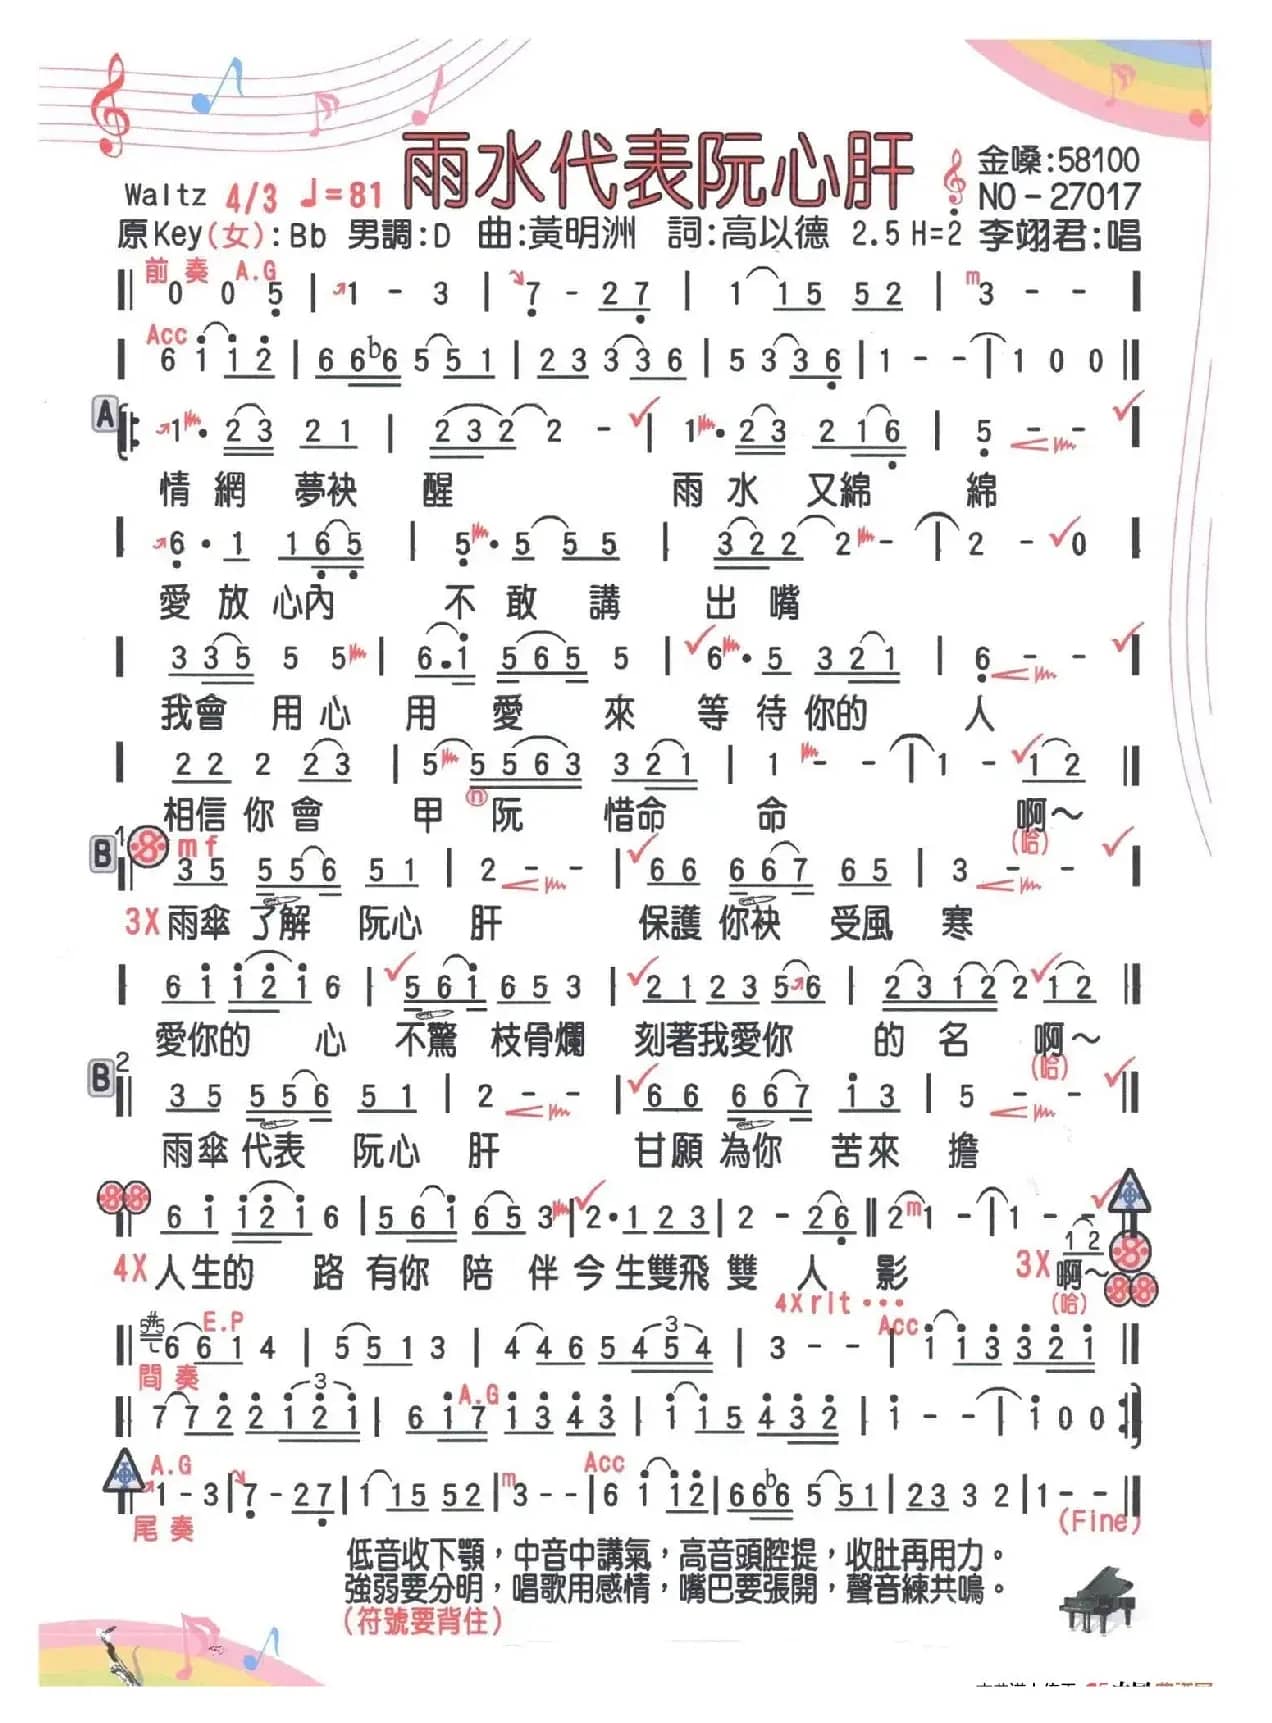 雨水代表阮心肝
金嗓:58100
Waltz 4/3 ♩=81 NO-27017
原Key(女):Bb 男調:D 曲:黃明洲 詞:高以德 2.5 H=2̇ 李翊君:唱
前奏 A.G
0 0 5̣ | 1 - 3 | 7̣ - 2 7̣ | 1 1 5 5 2 | m 3 - - |
Acc
6 i i 2̇ | 6 6 b6 5 5 1 | 2 3 3 3 6 | 5 3 3 6̣ | 1 - - | 1 0 0 ‖
A
1· 2 3 2 1 | 2 3 2 2 - | 1· 2 3 2 1 6̣ | 5̣ - - |
情網夢袂醒 雨水又綿綿
6̣· 1 1 6̣ 5̣ | 5̣· 5 5 5 | 3 2 2 2 - | 2 - 0 |
愛放心內 不敢講出嘴
3 3 5 5 5 | 6· i 5 6 5 5 | 6· 5 3 2 1 | 6̣ - - |
我會用心用愛來等待你的人
2 2 2 2 3 | 5 5 5 6 3 3 2 1 | 1 - - | 1 - 1 2 ‖
n
相信你會甲阮惜命命 啊~
(哈)
B 1 mf
3 5 5 5 6 5 1 | 2 - - | 6 6 6 6 7 6 5 | 3 - - |
3X 雨傘了解阮心肝 保護你袂受風寒
6 i i 2̇ i 6 | 5 6 i 6 5 3 | 2 1 2 3 5 6 | 2 3 1 2 2 1 2 ‖
愛你的心不驚枝骨爛 刻著我愛你的名 啊~
(哈)
B 2
3 5 5 5 6 5 1 | 2 - - | 6 6 6 6 7 i 3 | 5 - - ‖
雨傘代表阮心肝 甘願為你苦來擔
6 i i 2̇ i 6 | 5 6 i 6 5 3 | 2· 1 2 3 | 2 - 2 6̣ ‖ 2 m 1 - | 1 - -
1 2
4X 人生的路有你陪伴今生雙飛雙人影 3X 啊~
4Xrit··· (哈)
#55 E.P Acc
6 6 1 4 | 5 5 1 3 | 4 4 6 5 4 5 4 | 3 - - | i i 3̇ 3̇ 2̇ i ‖
3
間奏
3
A.G
7 7 2̇ 2̇ i 2̇ i | 6 i 7 i 3̇ 4̇ 3̇ | i i 5 4̇ 3̇ 2̇ | i - - | i 0 0
A.G Acc
1 - 3 | 7̣ - 2 7̣ | 1 1 5 5 2 | m 3 - - | 6 i i 2̇ | 6 6 b6 5 5 1 | 2 3 3 2 | 1 - - ‖
尾奏 (Fine)
低音收下顎，中音中講氣，高音頭腔提，收肚再用力。
強弱要分明，唱歌用感情，嘴巴要張開，聲音練共鳴。
(符號要背住)